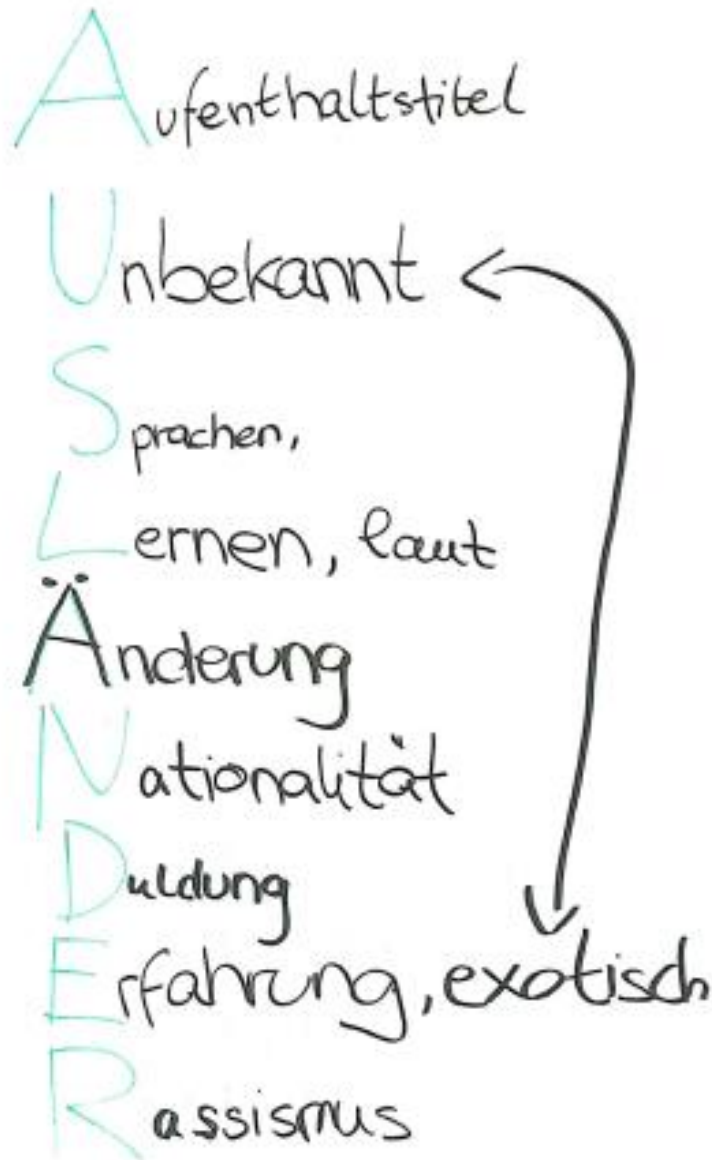 Aufenthaltstitel
Unbekannt
Sprachen,
Lernen, laut
Änderung
Nationalität
Duldung
Erfahrung, exotisch
Rassismus